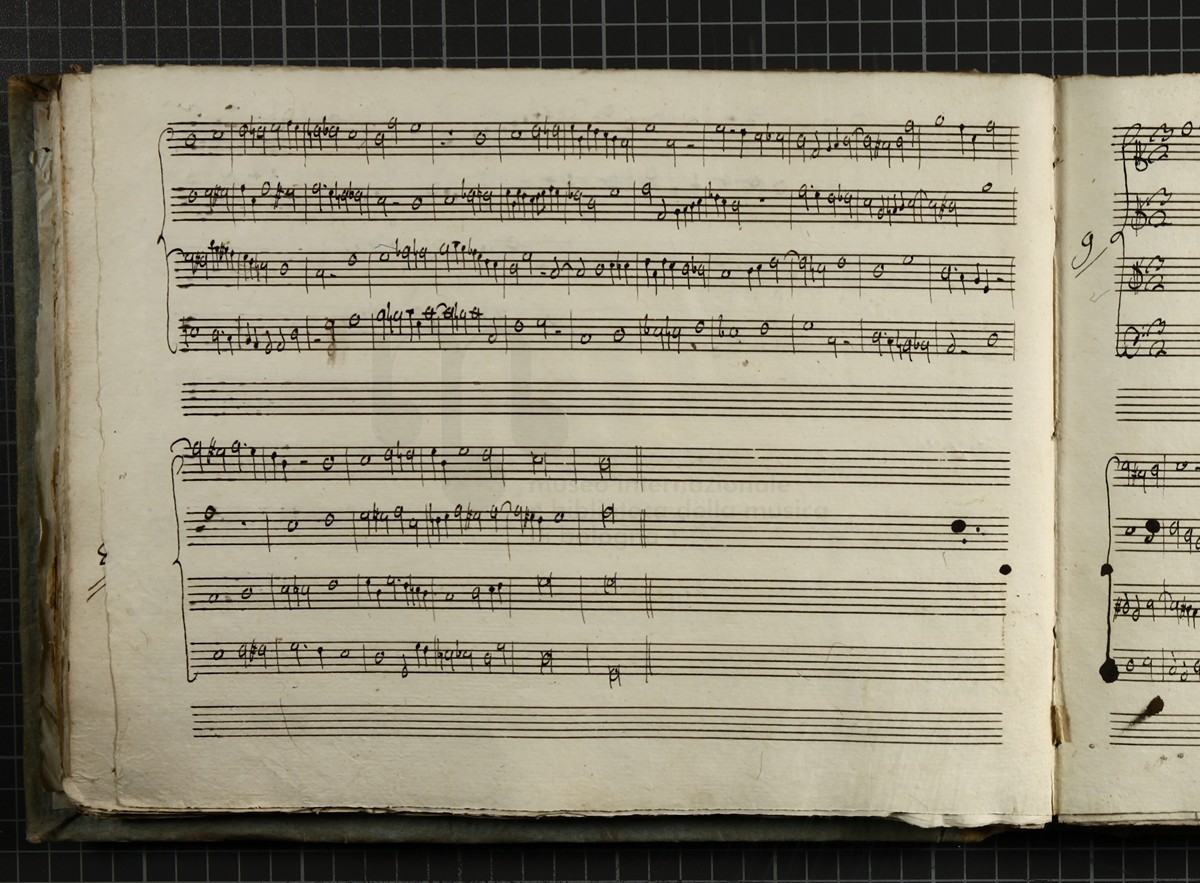 9
museo internazionale
e biblioteca della musica
di bologna